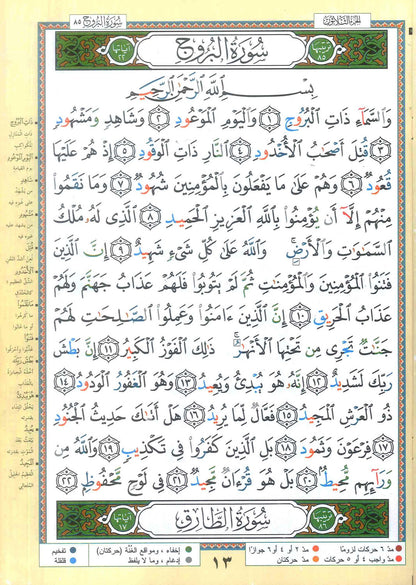 الجزء الثلاثون
سُورَةُ البُرُوج ٨٥
ترتيبها ٨٥ سُورَةُ البُرُوجِ آياتها ٢٢
بِسْمِ اللَّهِ الرَّحْمَٰنِ الرَّحِيمِ
وَالسَّمَاءِ ذَاتِ الْبُرُوجِ ١ وَالْيَوْمِ الْمَوْعُودِ ٢ وَشَاهِدٍ وَمَشْهُودٍ
٣ قُتِلَ أَصْحَٰبُ الْأُخْدُودِ ٤ النَّارِ ذَاتِ الْوَقُودِ ٥ إِذْ هُمْ عَلَيْهَا
قُعُودٌ ٦ وَهُمْ عَلَىٰ مَا يَفْعَلُونَ بِالْمُؤْمِنِينَ شُهُودٌ ٧ وَمَا نَقَمُوا
مِنْهُمْ إِلَّا أَن يُؤْمِنُوا بِاللَّهِ الْعَزِيزِ الْحَمِيدِ ٨ الَّذِي لَهُ مُلْكُ
السَّمَٰوَٰتِ وَالْأَرْضِ ۚ وَاللَّهُ عَلَىٰ كُلِّ شَيْءٍ شَهِيدٌ ٩ إِنَّ الَّذِينَ
فَتَنُوا الْمُؤْمِنِينَ وَالْمُؤْمِنَٰتِ ثُمَّ لَمْ يَتُوبُوا فَلَهُمْ عَذَابُ جَهَنَّمَ وَلَهُمْ
عَذَابُ الْحَرِيقِ ١٠ إِنَّ الَّذِينَ ءَامَنُوا وَعَمِلُوا الصَّٰلِحَٰتِ لَهُمْ
جَنَّٰتٌ تَجْرِي مِن تَحْتِهَا الْأَنْهَٰرُ ۚ ذَٰلِكَ الْفَوْزُ الْكَبِيرُ ١١ إِنَّ بَطْشَ
رَبِّكَ لَشَدِيدٌ ١٢ إِنَّهُ هُوَ يُبْدِئُ وَيُعِيدُ ١٣ وَهُوَ الْغَفُورُ الْوَدُودُ ١٤
ذُو الْعَرْشِ الْمَجِيدُ ١٥ فَعَّالٌ لِّمَا يُرِيدُ ١٦ هَلْ أَتَىٰكَ حَدِيثُ الْجُنُودِ
١٧ فِرْعَوْنَ وَثَمُودَ ١٨ بَلِ الَّذِينَ كَفَرُوا فِي تَكْذِيبٍ ١٩ وَاللَّهُ مِن
وَرَائِهِم مُّحِيطٌ ٢٠ بَلْ هُوَ قُرْءَانٌ مَّجِيدٌ ٢١ فِي لَوْحٍ مَّحْفُوظٍ ٢٢
ترتيبها ٨٦ سُورَةُ الطَّارِقِ آياتها ١٧
مدّ ٦ حركات لزومًا مدّ ٢ أو ٤ أو ٦ جوازًا إخفاء، ومواقع الغُنَّة (حركتان) تفخيم
مدّ واجب ٤ أو ٥ حركات مدّ حركتان إدغام، وما لا يلفظ قلقلة
١٣